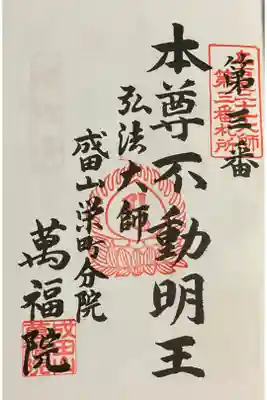 第三番
第三番札所
本尊不動明王
弘法大師
成田山栄町分院
萬福院
成田山